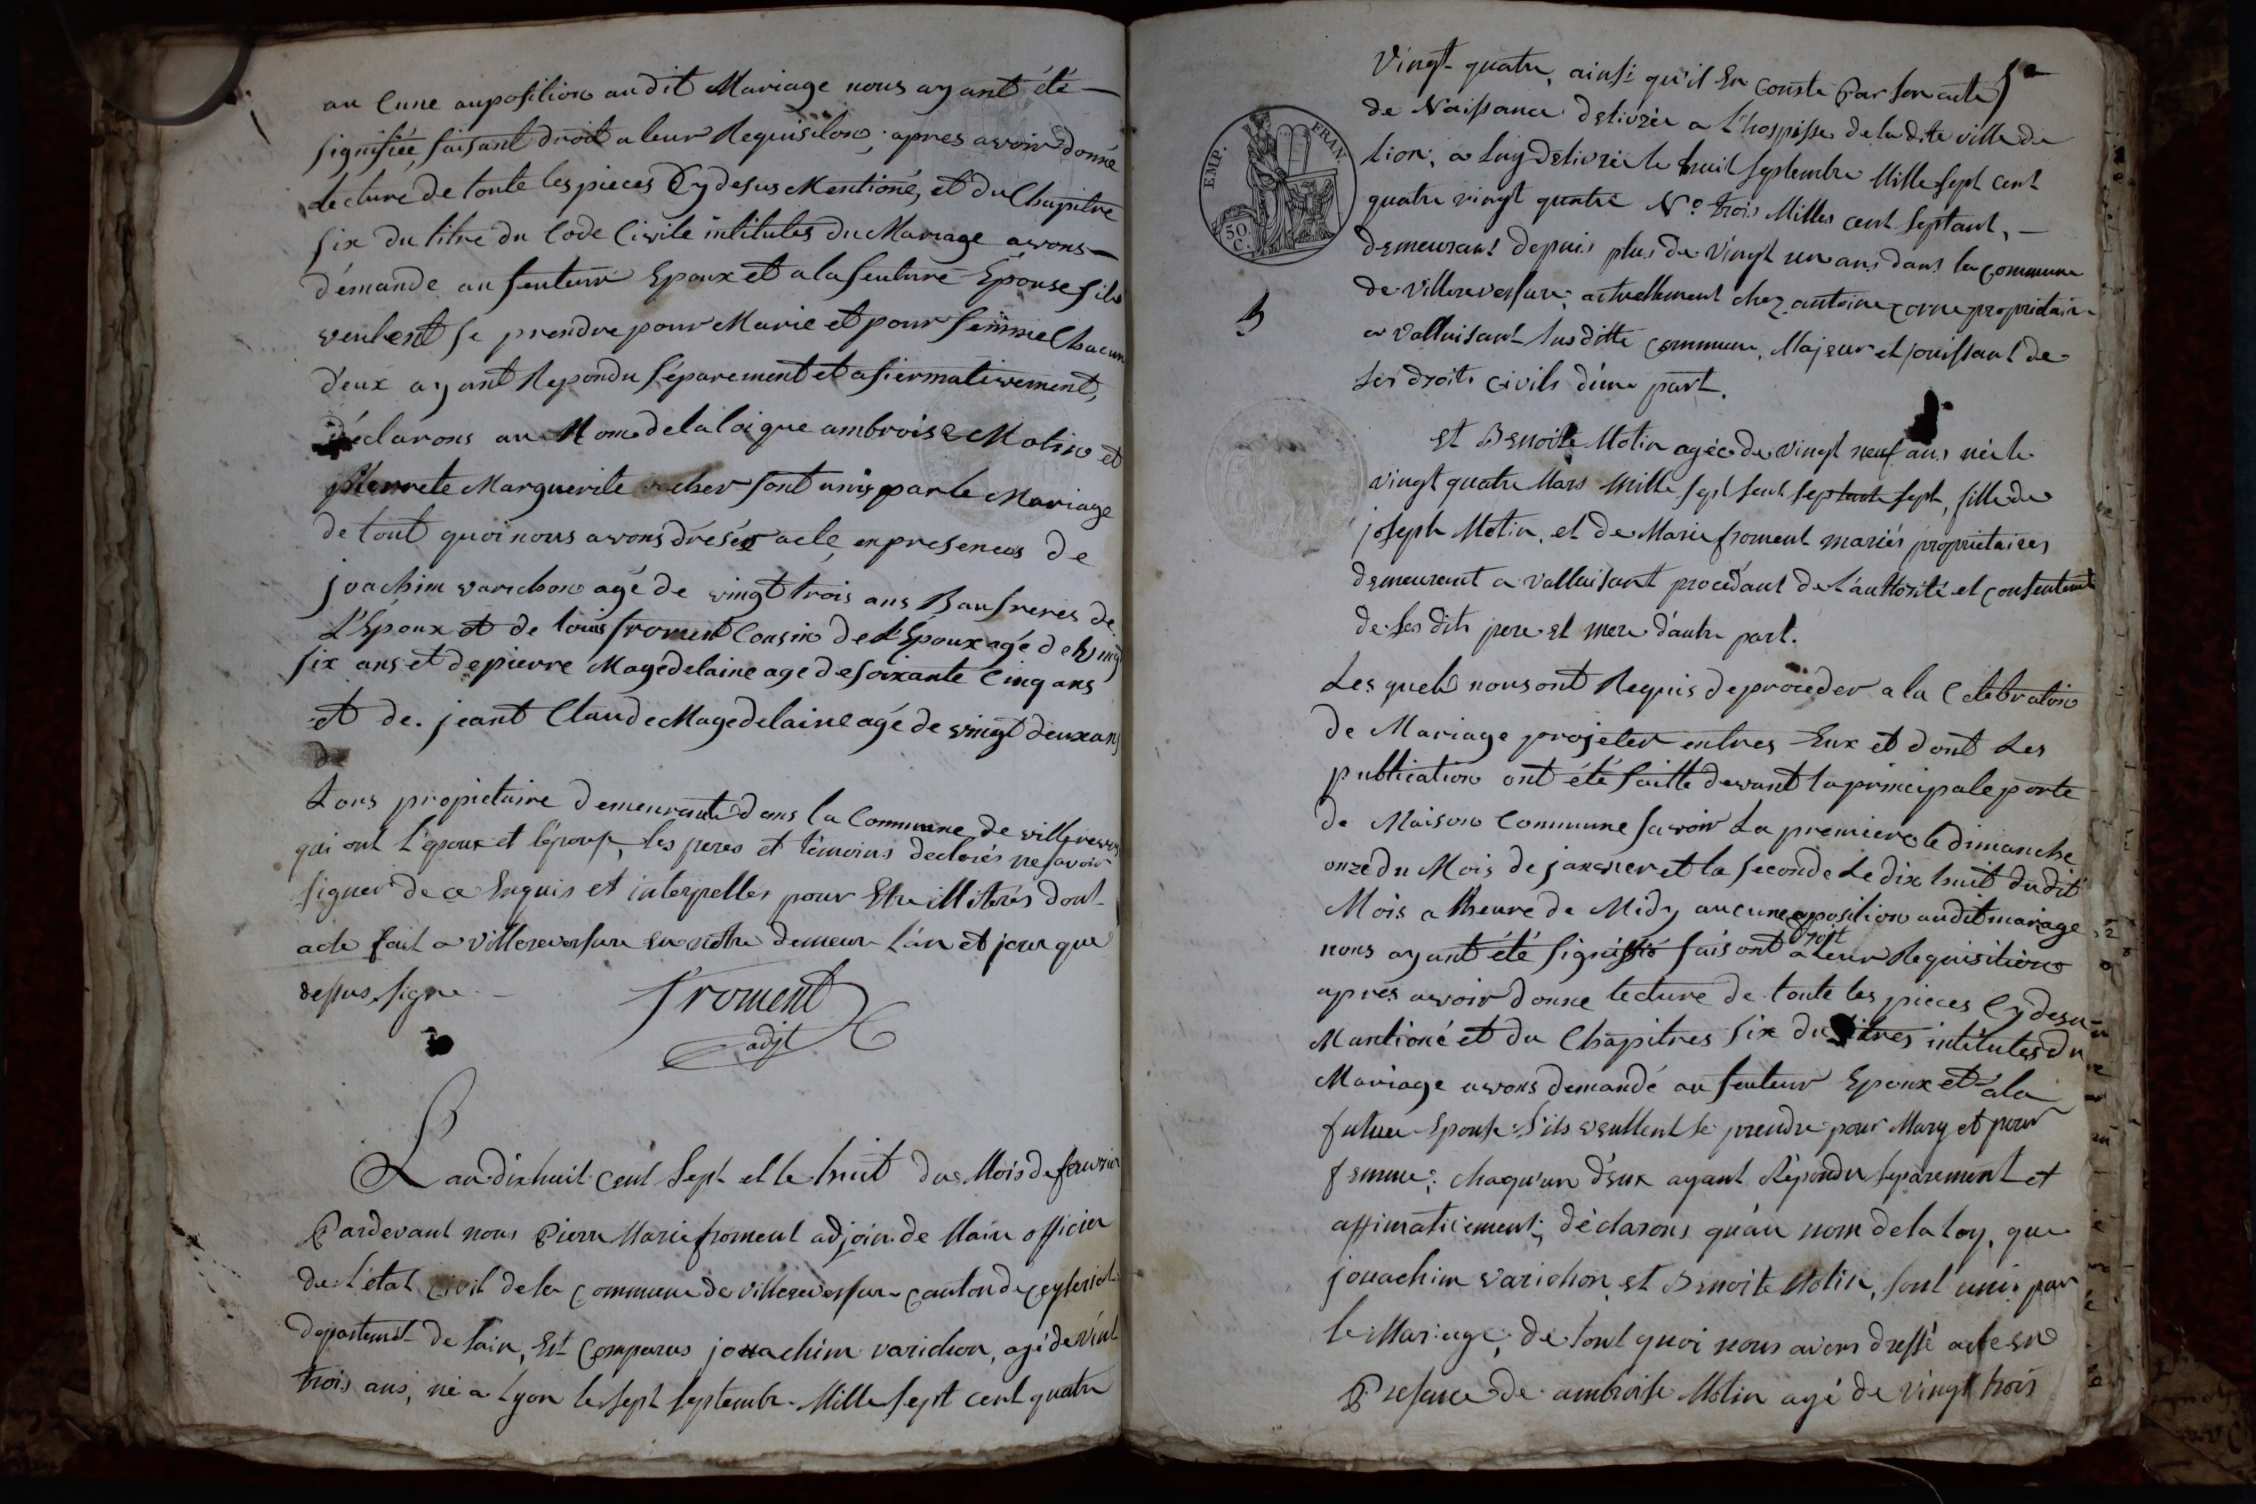 au Cune auposition audit Mariage nous ayant été
signifiée, faisant droit a leur Requisilon, apres avoir donné
Lecture de toute les pieces Cy desus Mentioné, et du Chapitre
six du titre du Code Civile intitules Du Mariage avons
démande au feuteur Epoux et a la feuture Epouse sils
veulent se prendre pour Marie et pour femme Chacun
d'eux ayant Repondu séparement et afiermativement,
déclarons au Nom de la loi que ambroise Motin et
pierrete Marguerite sont unis par le Mariage
de tout quoi nous avons drésér acte en presences de
joachim varichon agé de vingt trois ans Baufreres de
L'Époux et de louis froment Cousin de L'Époux agé de ving
six ans et de pierre Magedelaine age de soixante Cinq ans
et de. jeant Claude Magedelaine agé de vingt deux ans
Tous propietaire demeurant dans la Commune de villerevers
qui ont L'epoux et lépouse, les peres et témoins declarés ne savoir
signer de ce Enquis et interpelles pour Etre illiterés dont
acte fait a villereversure en notre demeure L'an et jour que
dessus signe
froment
adjt
L'an dix huit cent sept et le huit du Mois de fevrier
Pardevant nous Pierre Marie froment adjoin de Maire officier
de L'état civil de la Commune de villereversure canton de ceyseriat
departement de Lain, Est Comparus jouachim varichon, agé de vint
trois ans, né a Lyon le sept septembre Mille sept cent quatre
5e
vingt quatre, ainsi qu'il En conste Par son acte
de Naissance delivrée a L'hospisse de la dite ville de
Lion, a Luy delivrée le huit septembre Mille sept cent
quatre vingt quatre No trois Milles cent septant,
demeurant depuis plus de vingt un ans dans la commune
de villereversure, actuellement chez antoine corne proprietaire
a valluisant susditte commune, Majeur et jouissant de
ses droits civils d'une part.
EMP. FRAN.
50 C.
3
et Benoite Motin agée de vingt neuf ans née le
vingt quatre Mars Mille sept sent septante sept, fille de
joseph Motin, et de Marie froment mariés proprietaires
demeurent a valluisant procédant de L'authorité et consentement
de ses dits pere et mere d'autre part.
Les quels nous ont Requis de proceder a la Celebration
de Mariage projeter entres Eux et dont Les
publication ont été faitte devant la principale porte
de Maison Commune savoir La premiere le dimanche
onze du Mois de janvier et la seconde Le dix huit dudit
Mois a lheure de Midy aucune oposition audit mariage
nous ayant été signifié faisont droit a leur Requisitions
apres avoir donne lecture de toute les pieces Cy desu
Mantioné et du Chapitres six du titres intitules du
Mariage avons demandé au feuteur Epoux et a la
future Epouse s'ils veullent se prendre pour Mary et pour
femme; chaqu'un d'eux ayant Répondu separement et
affimativement; déclarons qu'au nom de la loy, que
jouachim varichon et Benoite Motin, sont unis par
le Mariage; de tout quoi nous avons dressé acte en
Presence de ambroise Motin agé de vingt trois